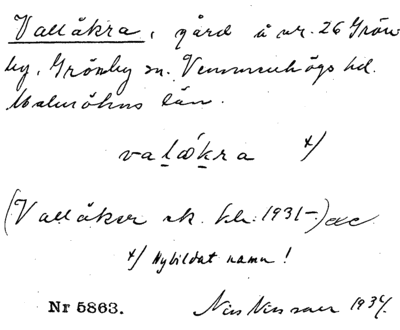 Vallåkra, gård å nr. 26 Grön
by, Grönby sn. Vemmenhögs hd.
Malmöhus län.
valåkra x/
(Vallåker sk. kb. 1931–)
x/ Nybildat namn!
Nr 5863. Nils Nilsson 1934.